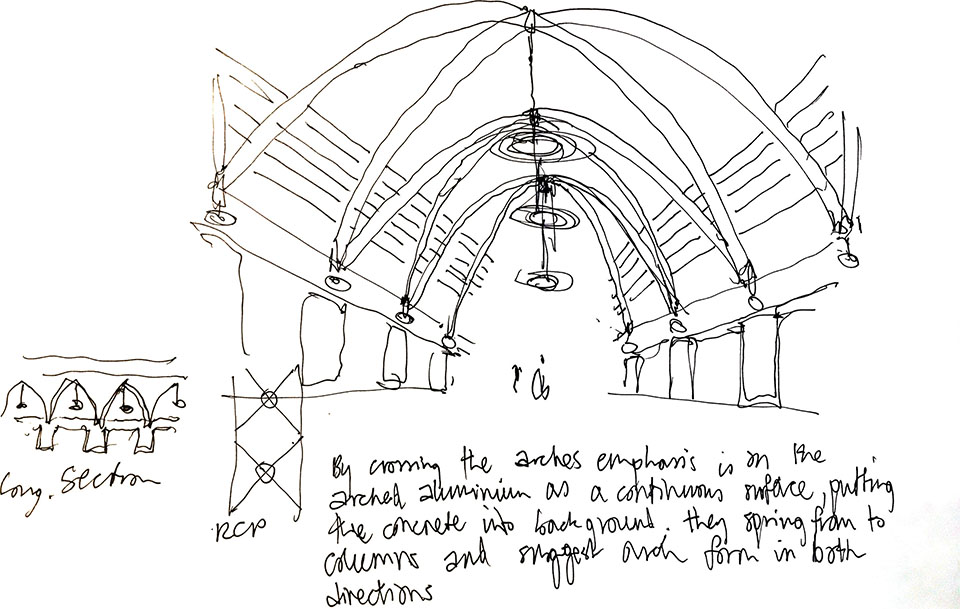 Long. Section
RCP
By crossing the arches emphasis is on the
arched aluminium as a continuous surface, putting
the concrete into background. they spring from to
columns and suggest arch form in both
directions